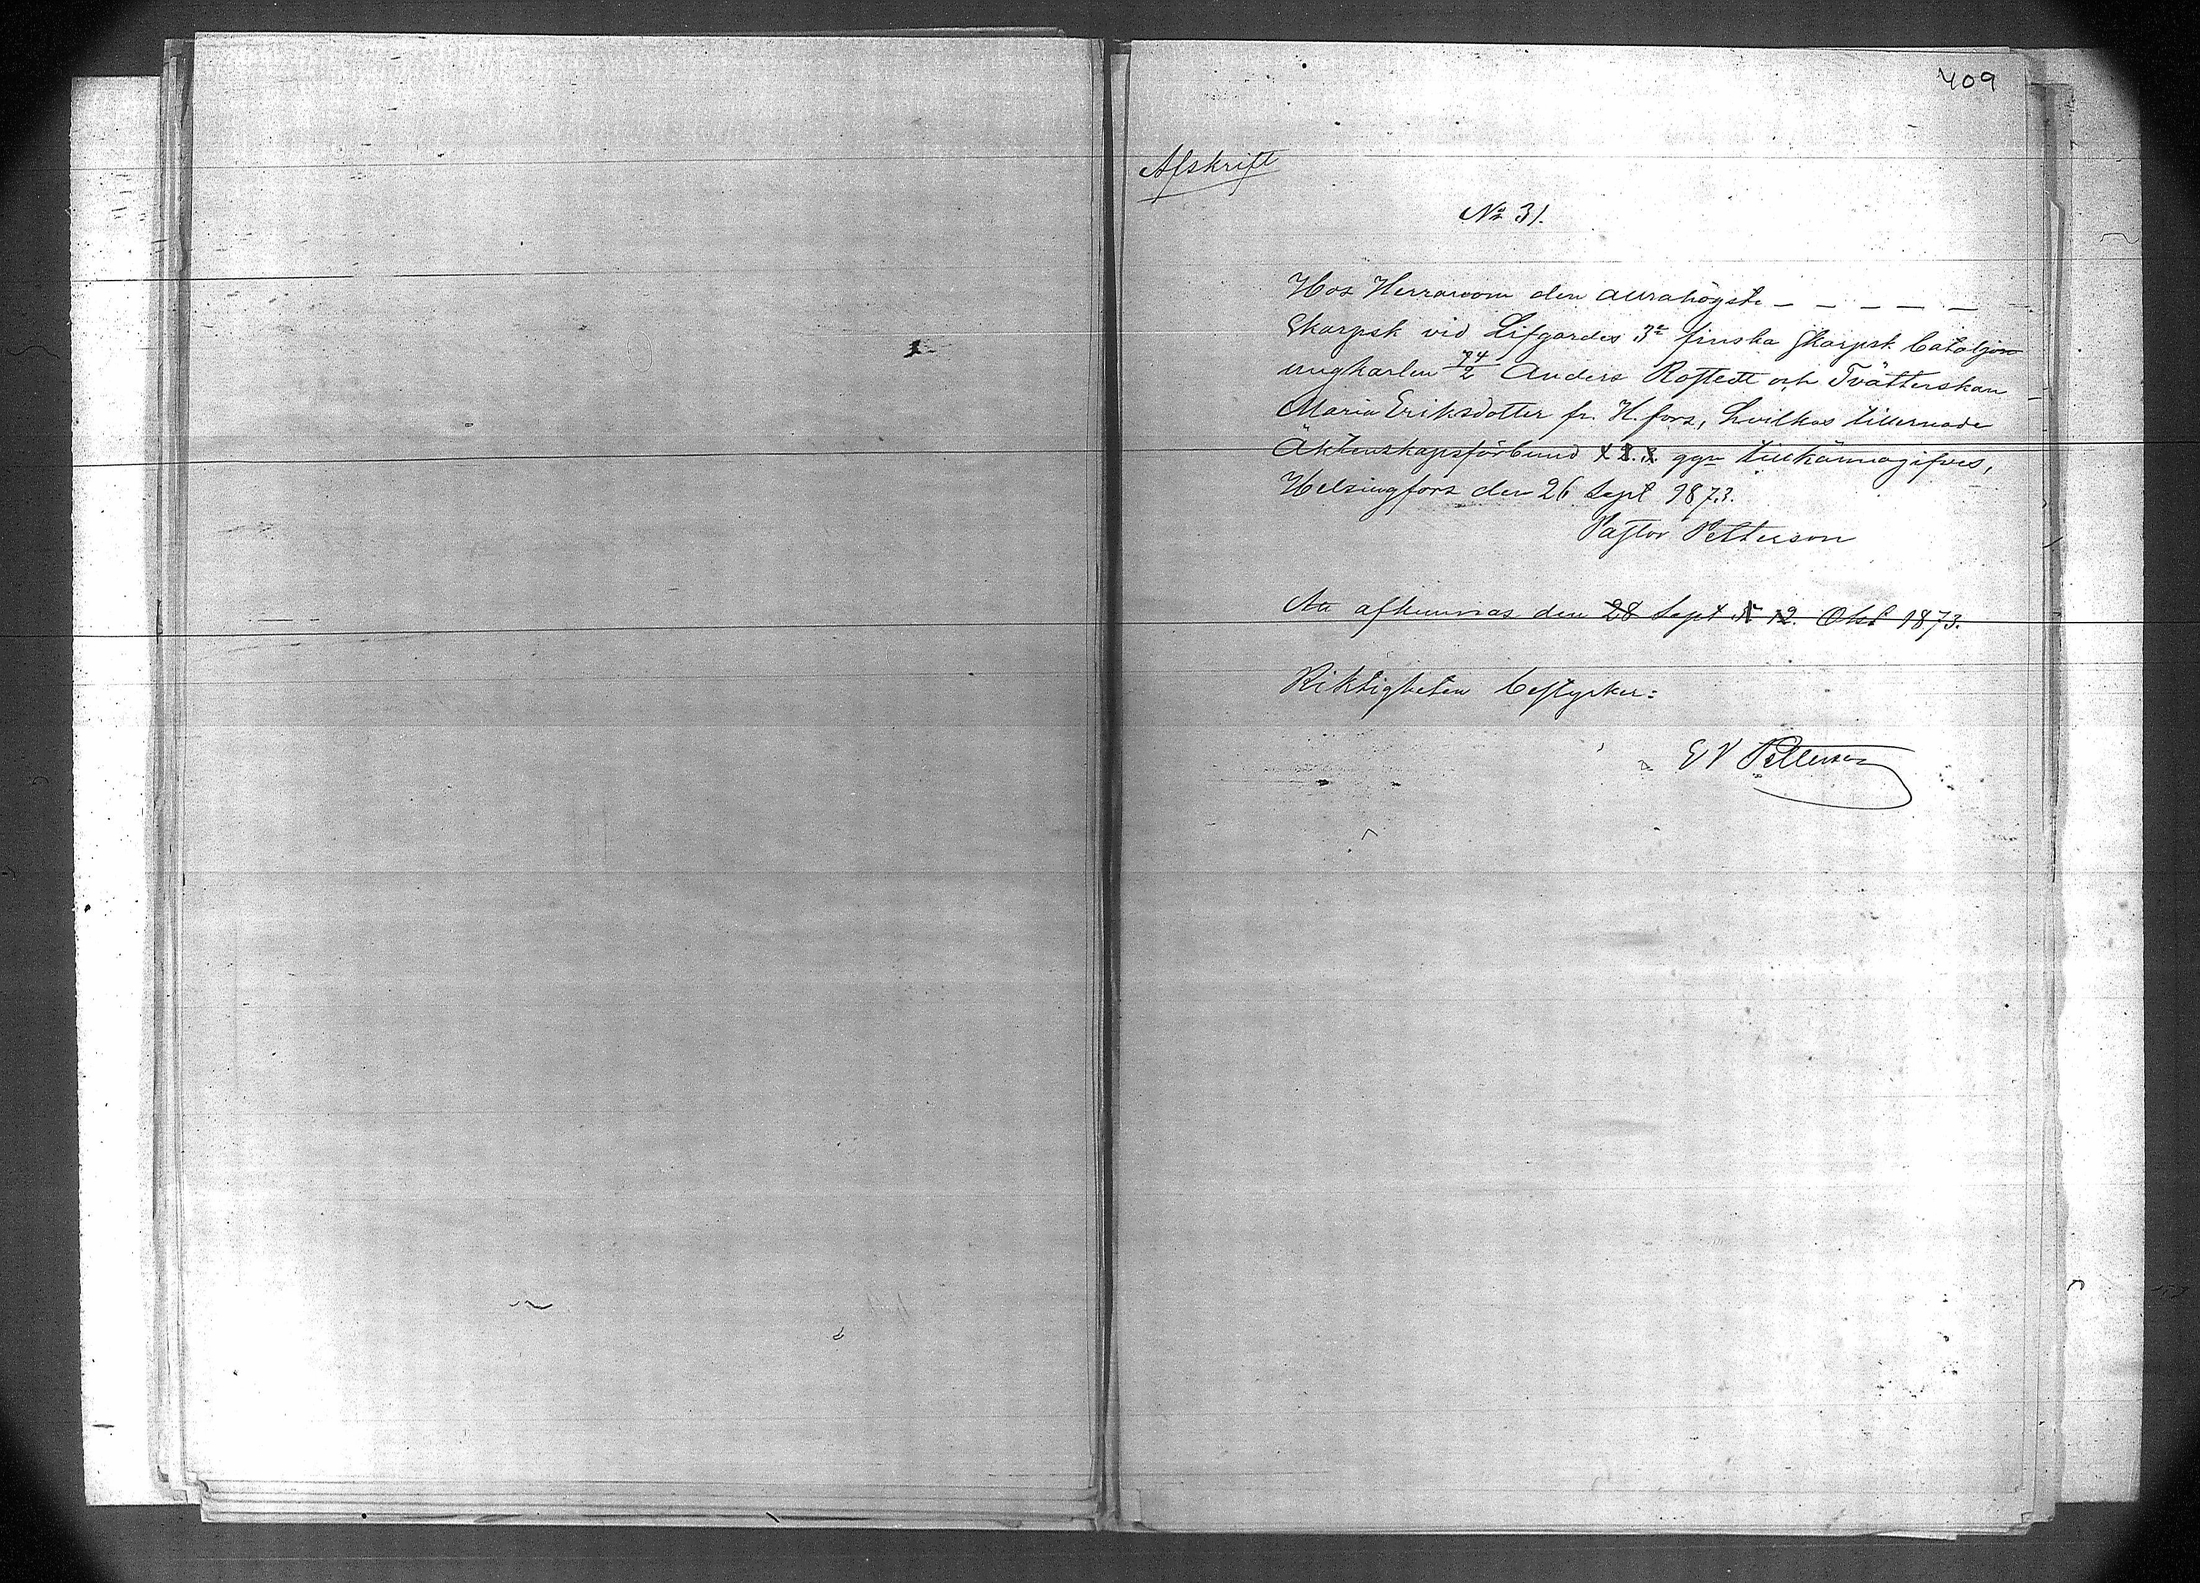 409
Afskrift
No 31.
Hos Herranom den allrahögste – – – – –
Skarpsk vid Lifgardes 3e finska Skarpsk bataljon
ungkarlen 74/2 Anders Rostedt och Tvätterskan
Maria Eriksdotter fr. H.fors, hvilkas tillernade
Äktenskapsförbund 1. 2. 3. ggn tillkännagifves,
Helsingfors den 26 Sept 1873.
Pastor Petterson
Att afkunnas den 28 Sept 5 12. Okt 1873.
Riktigheten bestyrker:
E V Petterson